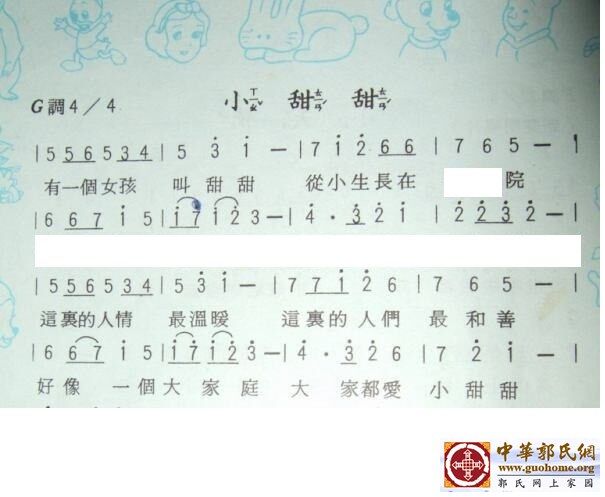 G調4/4 小ㄒㄧㄠˇ 甜ㄊㄧㄢˊ 甜ㄊㄧㄢˊ
|5 5 6 5 3 4|5 3̇ 1̇ —|7 1̇ 2̇ 6 6|7 6 5 —|
有一個女孩 叫甜甜 從小生長在 院
|6 6 7 1̇ 5|1̇ 7 1̇ 2̇ 3—|4̇ · 3̇ 2̇ 1̇|2̇ 2̇ 3̇ 2̇ —|
|5 5 6 5 3 4|5 3̇ 1̇ —|7 7 1̇ 2̇ 6|7 6 5 —|
這裏的人情 最溫暖 這裏的人們 最和善
|6 6 7 1̇ 5|1̇ 7̇ 1̇ 2̇ 3—|4̇ · 3̇ 2̇ 6|7 2̇ 1̇ —|
好像 一個大家庭 大家都愛 小甜甜
中華郭氏網
www.guohome.org
郭氏网上家园